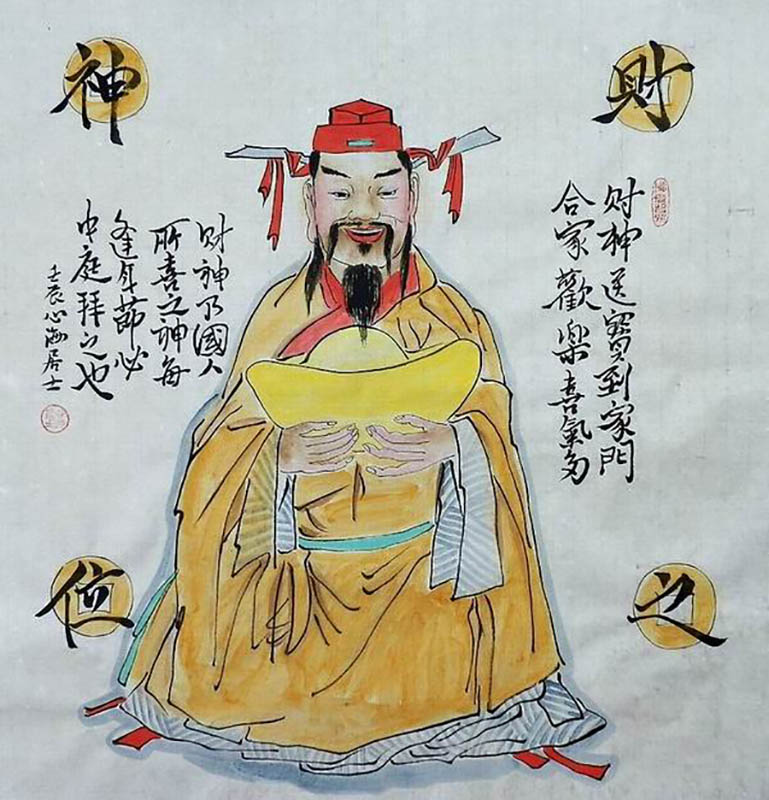 財神
之位
财神送寶到家門
合家歡樂喜氣多
财神乃國人
所喜之神每
逢年節必
中庭拜之也
壬辰心海居士